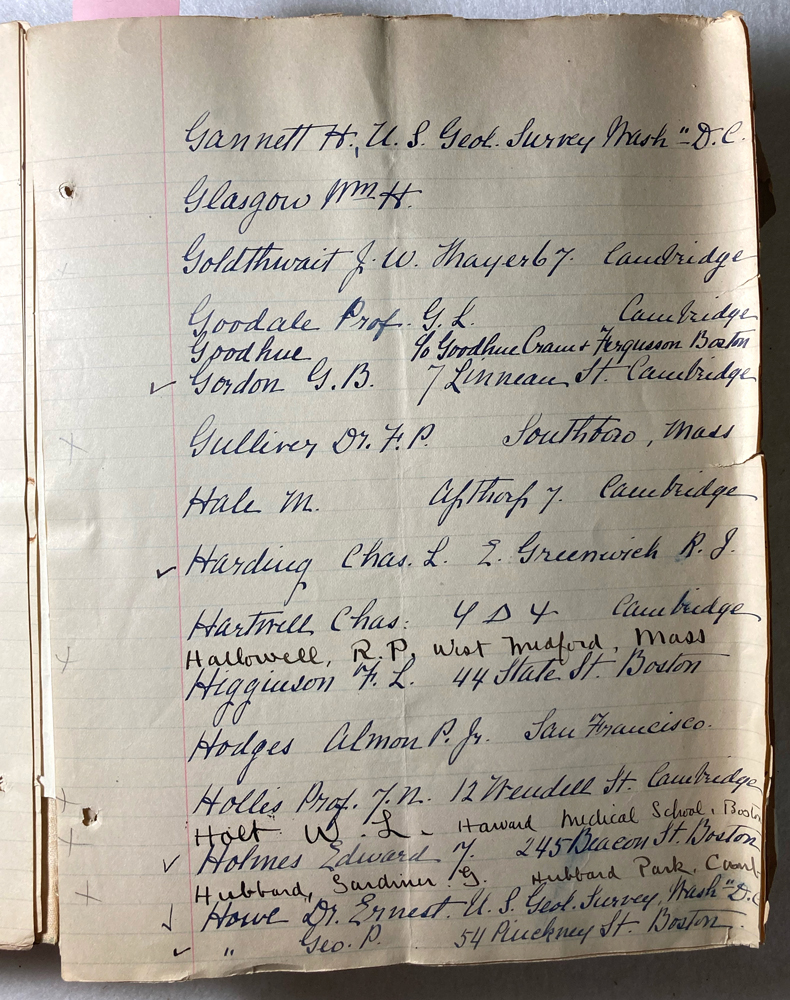 Gannett H., U. S. Geol. Survey Wash" D. C.
Glasgow Wm H.
Goldthwait J. W. Thayer 67. Cambridge
Goodale Prof. G. L. Cambridge
Goodhue c/o Goodhue Cram & Fergusson Boston
✓ Gordon G. B. 7 Linnean St. Cambridge
Gulliver Dr. F. P. Southboro, Mass
Hale M. Apthorp 7. Cambridge
✓ Harding Chas. L. E. Greenwich R. I.
Hartwell Chas: Cambridge
Hallowell, R. P. West Medford, Mass
Higginson F. L. 44 State St. Boston
Hodges Almon P. Jr. San Francisco.
Hollis Prof. I. N. 12 Wendell St. Cambridge
Holt W. L. - Harvard Medical School, Boston
✓ Holmes Edward J. 245 Beacon St. Boston
Hubbard, Gardiner G. Hubbard Park, Camb
✓ Howe Dr. Ernest. U. S. Geol. Survey, Wash" D. C
✓ " Geo. P. 54 Pinckney St. Boston